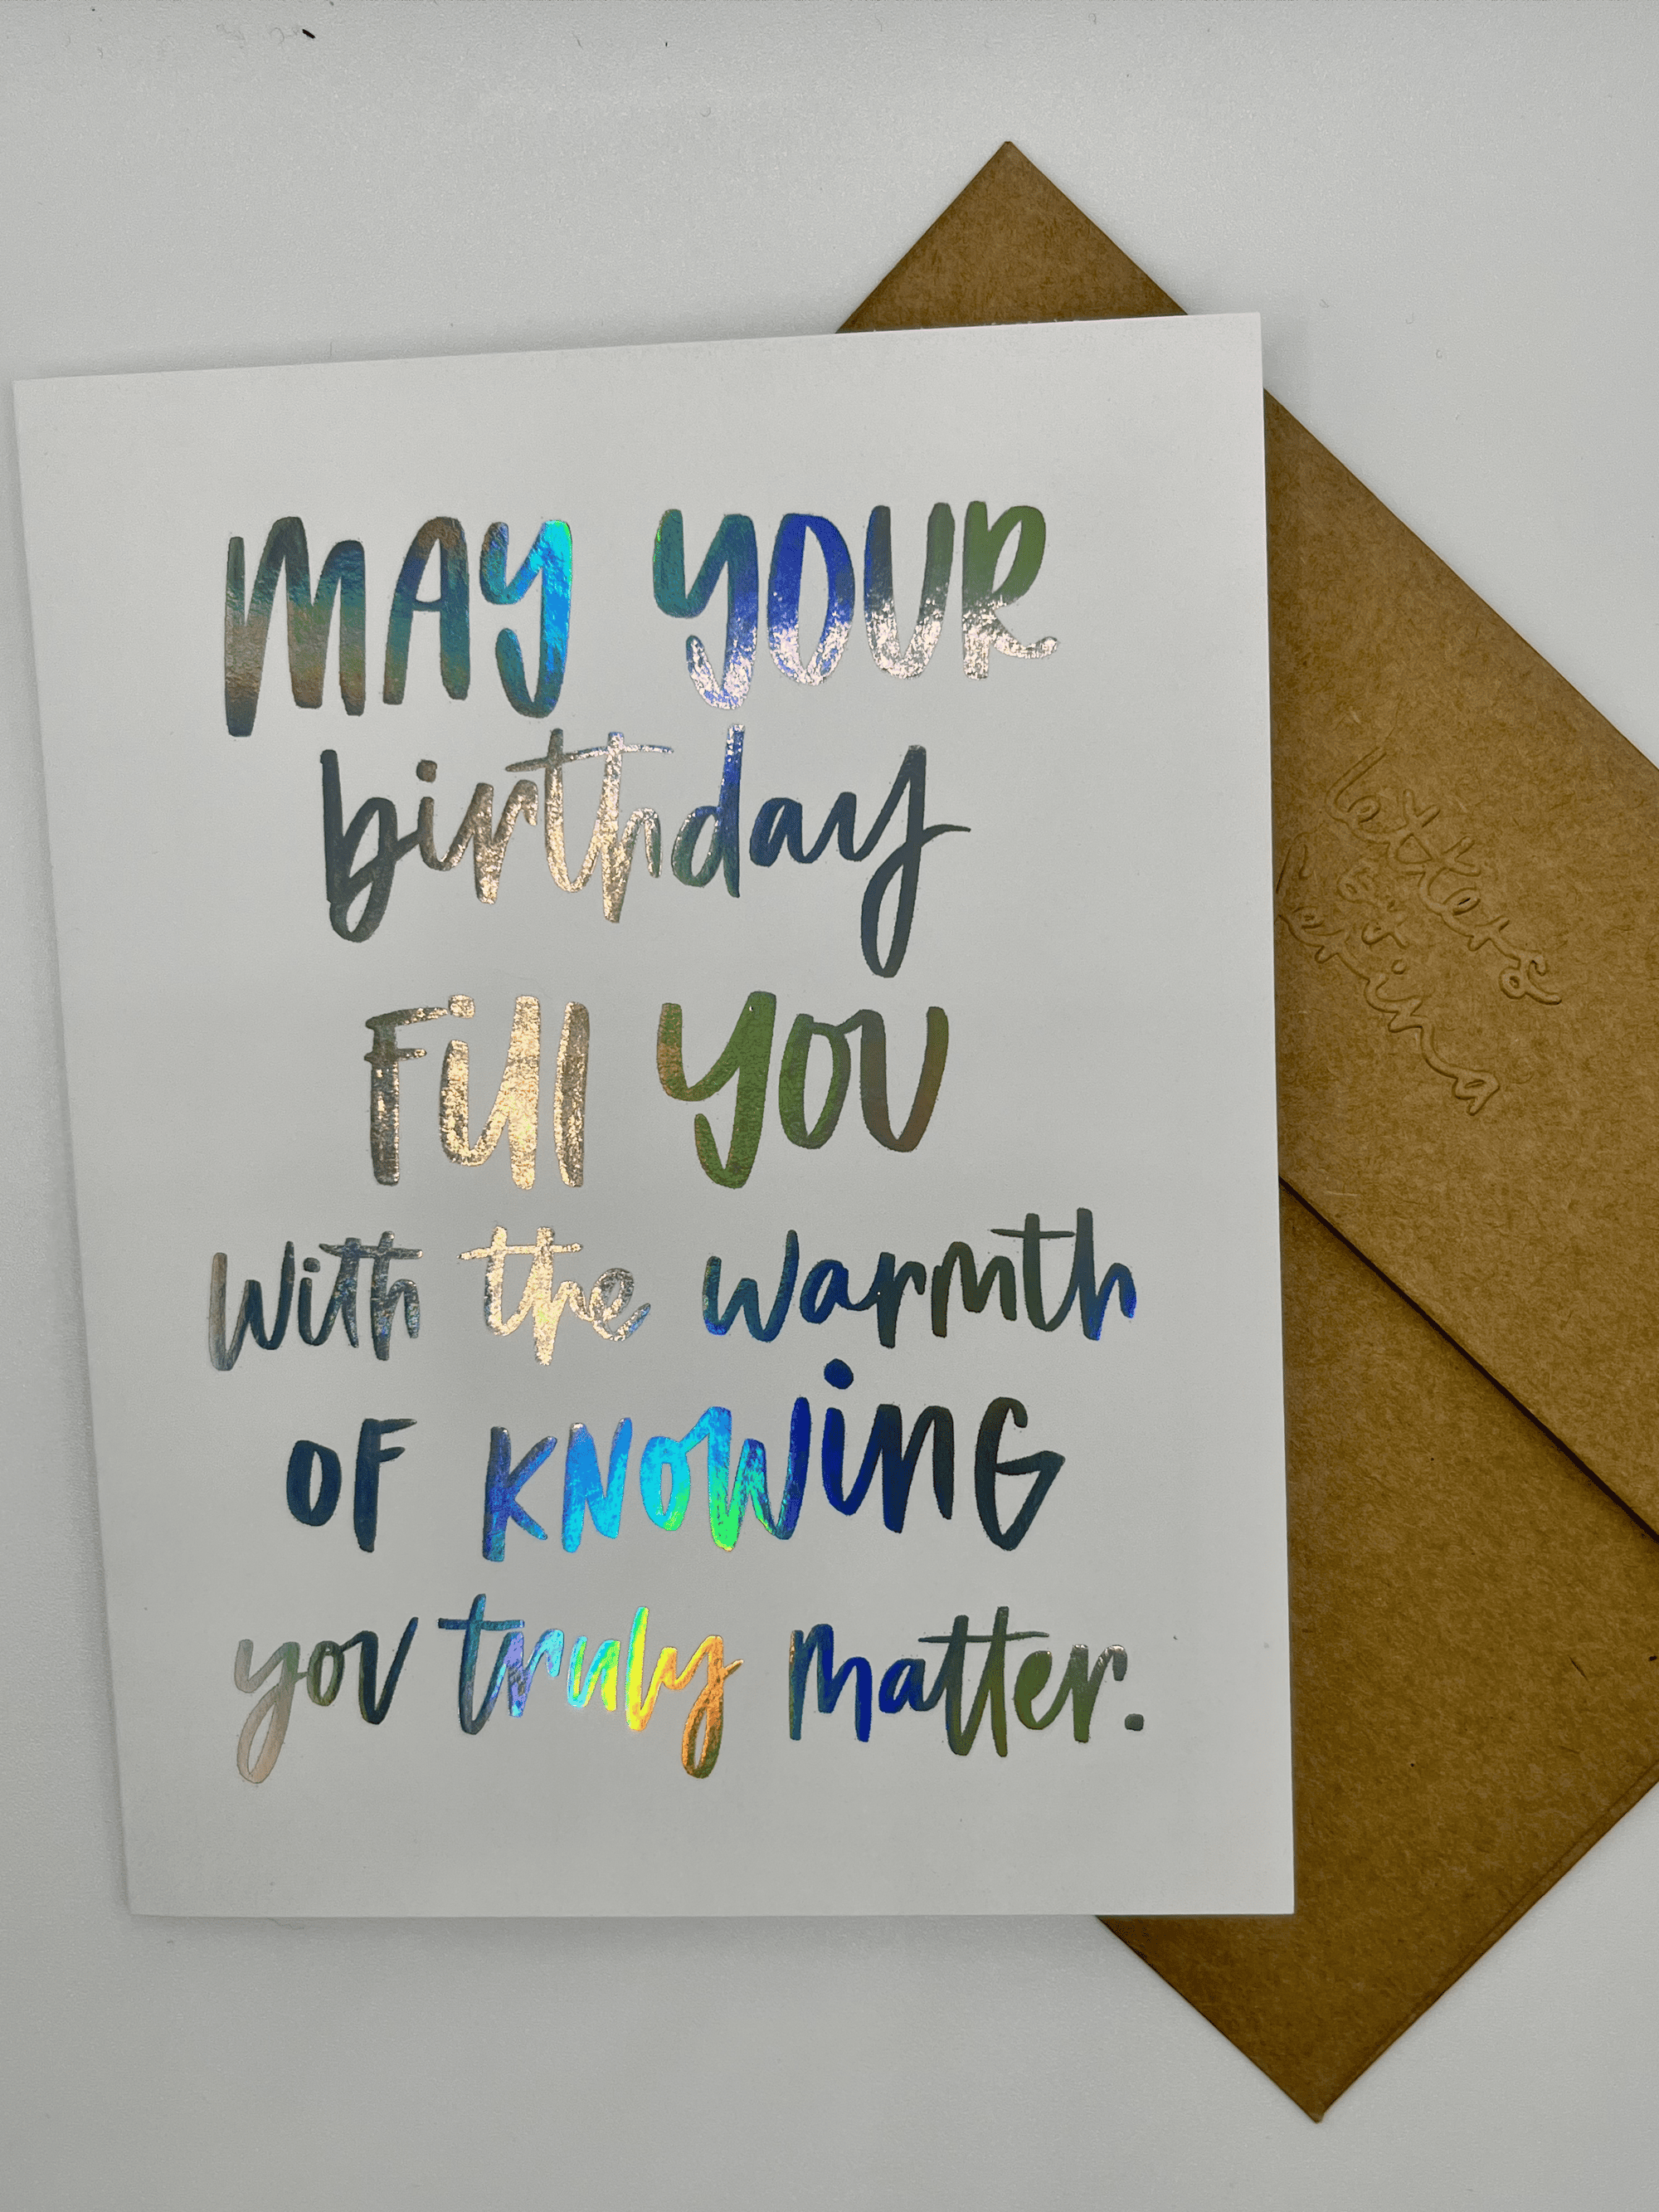 MAY YOUR
birthday
Fill YOU
with the warmth
OF KNOWiNG
you truly matter.
letters
by
Rerina